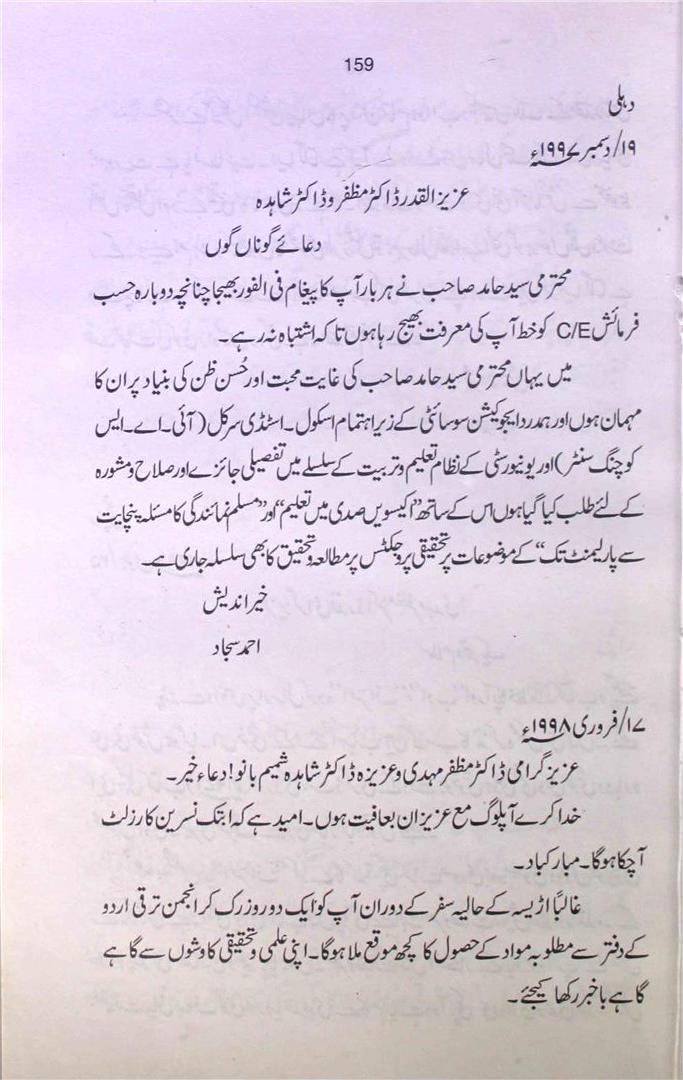 159
دہلی
۱۹/دسمبر ۱۹۹۷ء
عزیز القدر ڈاکٹر مظفر و ڈاکٹر شاہدہ
دعائے گوناں گوں
محترمی سید حامد صاحب نے ہر بار آپ کا پیغام فی الفور بھیجا چنانچہ دوبارہ حسب
فرمائش C/E کو خط آپ کی معرفت بھیج رہا ہوں تا کہ اشتباہ نہ رہے۔
میں یہاں محترمی سید حامد صاحب کی غایت محبت اور حُسن ظن کی بنیاد پر ان کا
مہمان ہوں اور ہمدرد ایجوکیشن سوسائٹی کے زیر اہتمام اسکول۔ اسٹڈی سرکل (آئی۔ اے۔ ایس
کوچنگ سنٹر) اور یونیورسٹی کے نظام تعلیم و تربیت کے سلسلے میں تفصیلی جائزے اور صلاح و مشورہ
کے لئے طلب کیا گیا ہوں اس کے ساتھ ”اکیسویں صدی میں تعلیم“ اور ”مسلم نمائندگی کا مسئلہ پنچایت
سے پارلیمنٹ تک“ کے موضوعات پر تحقیقی پروجکٹس پر مطالعہ و تحقیق کا بھی سلسلہ جاری ہے۔
خیر اندیش
احمد سجاد
۱۷/فروری ۱۹۹۸ء
عزیز گرامی ڈاکٹر مظفر مہدی و عزیزہ ڈاکٹر شاہدہ شمیم بانو! دعاء خیر۔
خدا کرے آپلوگ مع عزیزان بعافیت ہوں۔ امید ہے کہ ابتک نسرین کا رزلٹ
آچکا ہوگا۔ مبارکباد۔
غالبًا اڑیسہ کے حالیہ سفر کے دوران آپ کو ایک دو روز رک کر انجمن ترقی اردو
کے دفتر سے مطلوبہ مواد کے حصول کا کچھ موقع ملا ہوگا۔ اپنی علمی و تحقیقی کاوشوں سے گاہے
گاہے باخبر رکھا کیجئے۔